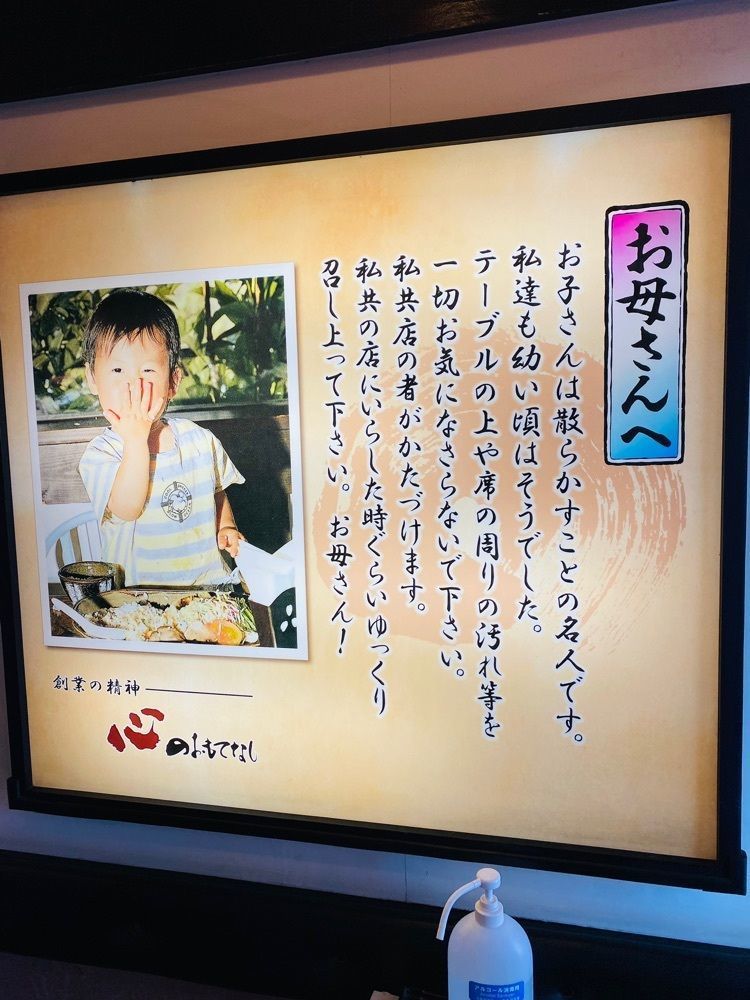 お母さんへ
お子さんは散らかすことの名人です。
私達も幼い頃はそうでした。
テーブルの上や席の周りの汚れ等を
一切お気になさらないで下さい。
私共店の者がかたづけます。
私共の店にいらした時ぐらいゆっくり
召し上って下さい。お母さん！
創業の精神
心のおもてなし
アルコール消毒用